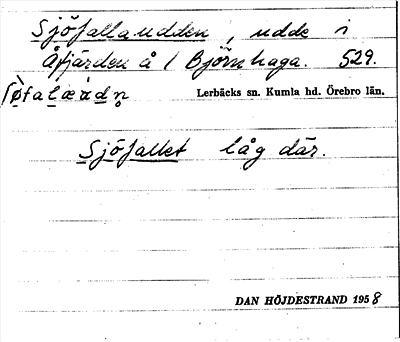 Sjöfallaudden, udde i
Åfjärden å 1 Björnhaga. 529.
Lerbäcks sn. Kumla hd. Örebro län.
Sjöfallet låg där.
DAN HÖJDESTRAND 1958